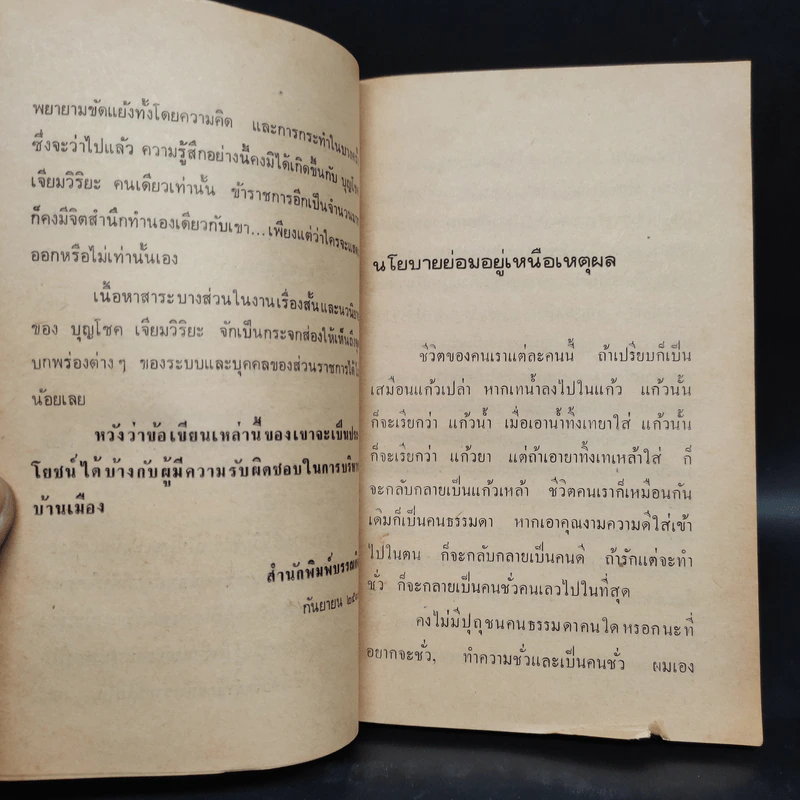 พยายามขัดแย้งทั้งโดยความคิด และการกระทำในบาง
ซึ่งจะว่าไปแล้ว ความรู้สึกอย่างนี้คงมิได้เกิดขึ้นกับ
เจียมวิริยะ คนเดียวเท่านั้น ข้าราชการอีกเป็นจำนวน
ก็คงมีจิตสำนึกทำนองเดียวกับเขา...เพียงแต่ว่าใครจะ
ออกหรือไม่เท่านั้นเอง
เนื้อหาสาระบางส่วนในงานเรื่องสั้นและ
ของ บุญโชค เจียมวิริยะ จักเป็นกระจกส่องให้เห็น
บกพร่องต่างๆ ของระบบและบุคคลของส่วนราชการได้
น้อยเลย
หวังว่าข้อเขียนเหล่านี้ของเขาจะเป็นประ
โยชน์ได้บ้างกับผู้มีความรับผิดชอบในการ
บ้านเมือง
สำนักพิมพ์
กันยายน
นโยบายย่อมอยู่เหนือเหตุผล
ชีวิตของคนเราแต่ละคนนี้ ถ้าเปรียบก็เป็น
เสมือนแก้วเปล่า หากเทน้ำลงไปในแก้ว แก้วนั้น
ก็จะเรียกว่า แก้วน้ำ เมื่อเอาน้ำทิ้งเทยาใส่ แก้วนั้น
ก็จะเรียกว่า แก้วยา แต่ถ้าเอายาทิ้งเทเหล้าใส่ ก็
จะกลับกลายเป็นแก้วเหล้า ชีวิตคนเราก็เหมือนกัน
เดิมก็เป็นคนธรรมดา หากเอาคุณงามความดีใส่เข้า
ไปในตน ก็จะกลับกลายเป็นคนดี ถ้ารักแต่จะทำ
ชั่ว ก็จะกลายเป็นคนชั่วคนเลวไปในที่สุด
คงไม่มีปุถุชนคนธรรมดาคนใดหรอกนะที่
อยากจะชั่ว, ทำความชั่วและเป็นคนชั่ว ผมเอง